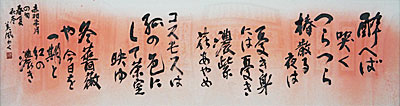 酔へば
哭く
つらつら
椿散る
夜は
憂き身
には憂き
濃紫
花あやめ
コスモスは
孤の色に
して茶室
映ゆ
冬薔薇
や今日を
一期と
紅の
濃き